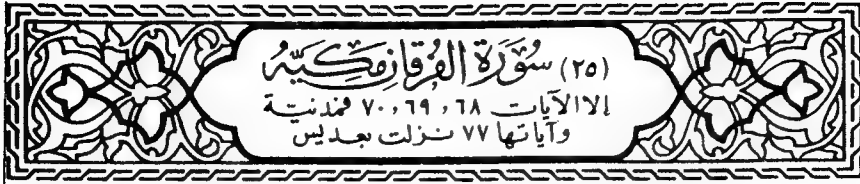 (٢٥) سُورَة الفُرقان مَكيّة
إلا الآيات ٦٨ ، ٦٩ ، ٧٠ فمدنيّة
وآياتها ٧٧ نزلت بعد يس